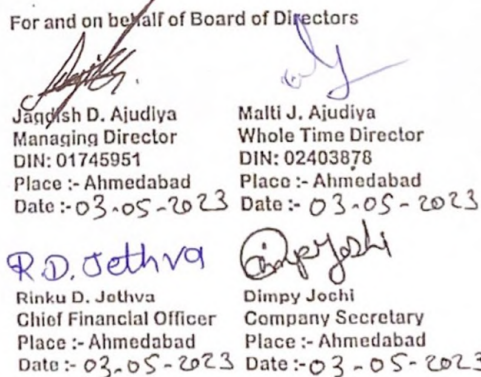 For and on behalf of Board of Directors
Jagdish D. Ajudiya
Managing Director
DIN: 01745951
Place :- Ahmedabad
Date :- 03-05-2023
Malti J. Ajudiya
Whole Time Director
DIN: 02403878
Place :- Ahmedabad
Date :- 03-05-2023
R.D. Jethva
Rinku D. Jethva
Chief Financial Officer
Place :- Ahmedabad
Date :- 03-05-2023
Dimpy Joshi
Dimpy Jochi
Company Secretary
Place :- Ahmedabad
Date :- 03-05-2023